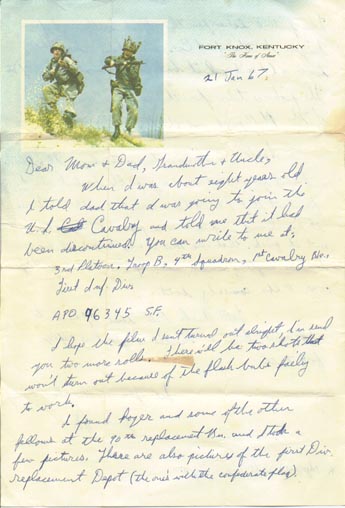 FORT KNOX, KENTUCKY
"The Home of Armor"
21 Jan 67
Dear Mom & Dad, Grandmother & Uncle,
When I was about eight years old
I told dad that I was going to join the
U.S. Cavalry and told me that it had
been discontinued. You can write to me at;
3rd Platoon, Troop B, 4th Squadron, 1st Cavalry
First Inf. Div.
APO 96345 S.F.
I hope the film I sent turned out alright, I'm send
you two more rolls. There will be two shots that
won't turn out because of the flash bulbs failing
to work.
I found Roger and some of the other
fellows at the 90th replacement Bn. and I took a
few pictures. There are also pictures of the first Div.
replacement Depot (the one with the confederate flag).